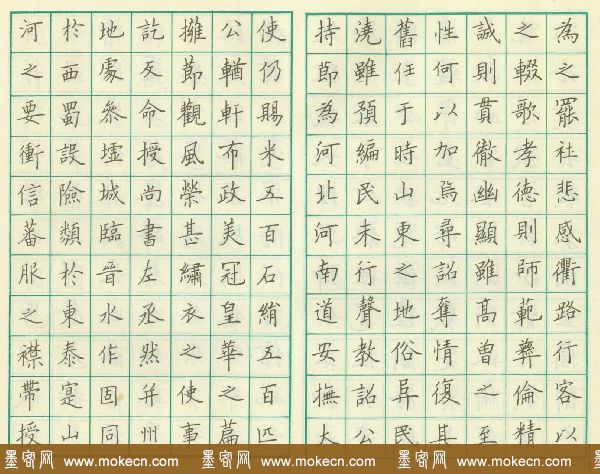 為之罷社悲感衢路行客以
之輟歌孝德則師範彝倫精
誠則貫徹幽顯雖高曾之至
性何以加焉尋詔奪情復其
舊任于時山東之地俗阜民
澆雖預編民未行聲教詔公
持節為河北河南道安撫大
使仍賜米五百石絹五百匹
公輶軒布政美冠皇華之篇
擁節觀風榮甚繡衣之使事
訖反命授尚書左丞然并州
地處參墟城臨晉水作固同
於西蜀設險類於東泰寔山
河之要衝信蕃服之襟帶授
墨客网 www.mokecn.com 墨客网 www.mokecn.com 墨客网 www.mokecn.com